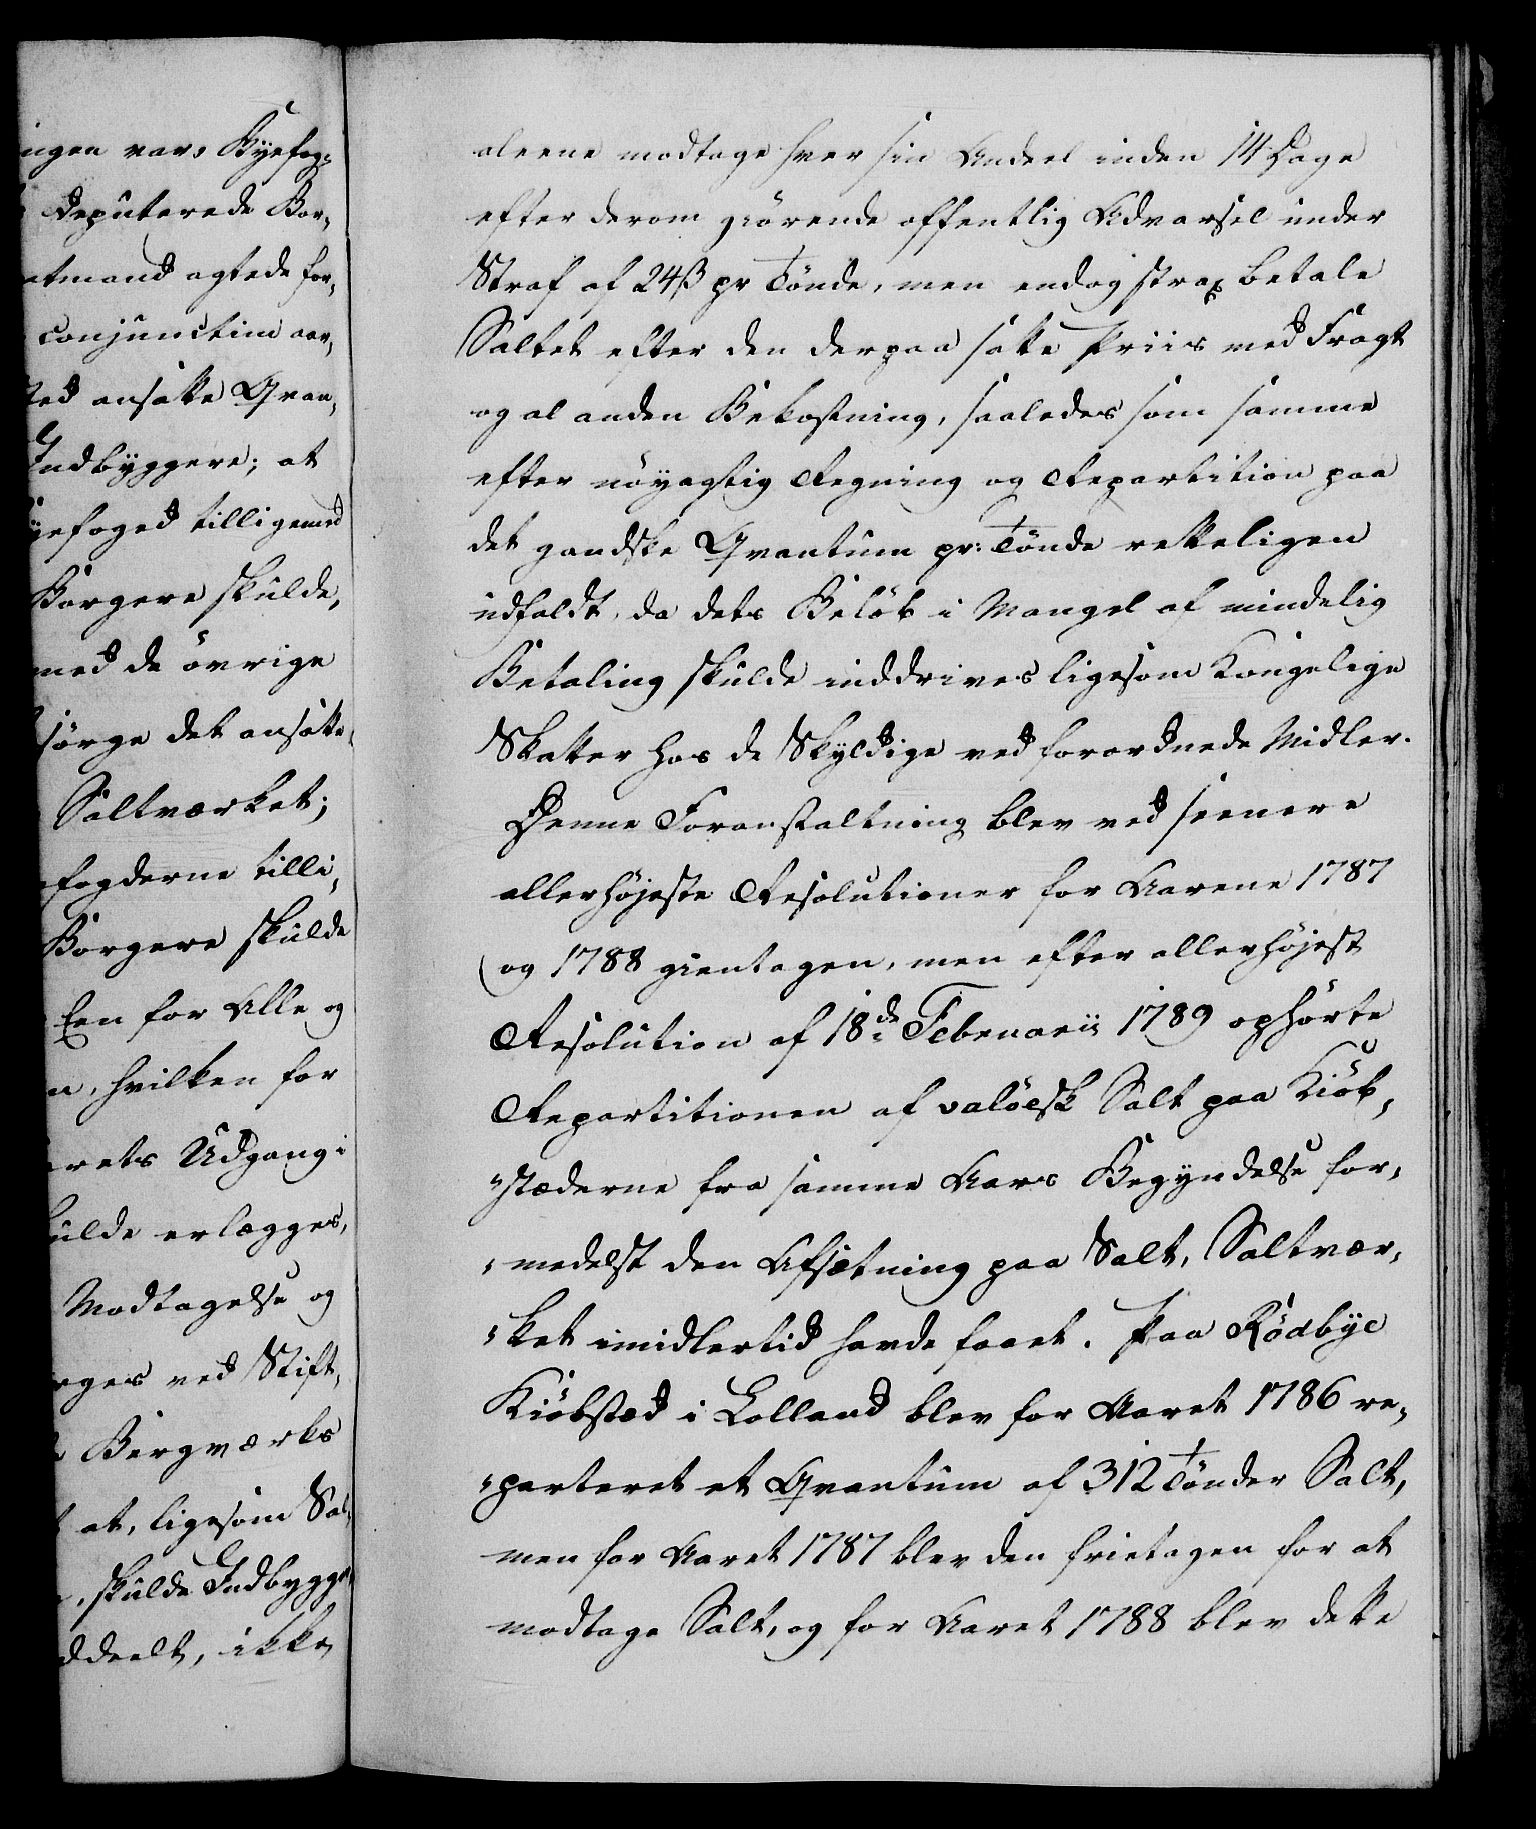 ingen vars Byefog¬
Deputerede Bor,
atmand agtede for,
conjunctim aar,
sted ansatte Qvan,
Indbyggere; at
yefoged tilligemed
Borgere skulde,
med de övrige
sörge det ansatte
Saltværket;
fogderne tilli,
Borgere skulde
Een for Alle og
n, hvilken for
arets Udgang i
ulde erlægges,
Modtagelse og
rges ved Stift,
Bergværks
at, ligesom Sal,
skulde Indbygge,
ddeelt, ikke
aleene modtage hver sin Andeel inden 14 Dage
efter derom giörende offentlig Advarsel under
Straf af 24 ß pr Tönde, men endog strax betale
Saltet efter den derpaa satte Priis med Fragt
og al anden Bekostning, saaledes som samme
efter nöyagtig Regning og Repartition paa
det gandske Qvantum pr: Tönde retteligen
udfaldt, da dets Belöb i Mangel af mindelig
Betaling skulde inddrives ligesom Kongelige
Skatter hos de Skyldige ved forordnede Midler.
Denne Foranstaltning blev ved seenere
allerhöjeste Resolutioner for Aarene 1787
og 1788 gientagen, men efter allerhöjest
Resolution af 18de Februarii 1789 ophörte
Repartitionen af valöesk Salt paa Kiöb,
"stæderne fra samme Aars Begyndelse for,
"medelst den Afsætning paa Salt, Saltvær,
"ket imidlertid havde faaet. Paa Rödbye
Kiöbsted i Lolland blev for Aaret 1786 re,
"parteret et Qvantum af 312 Tönder Salt,
men for Aaret 1787 blev den frietagen for at
modtage Salt, og for Aaret 1788 blev dette